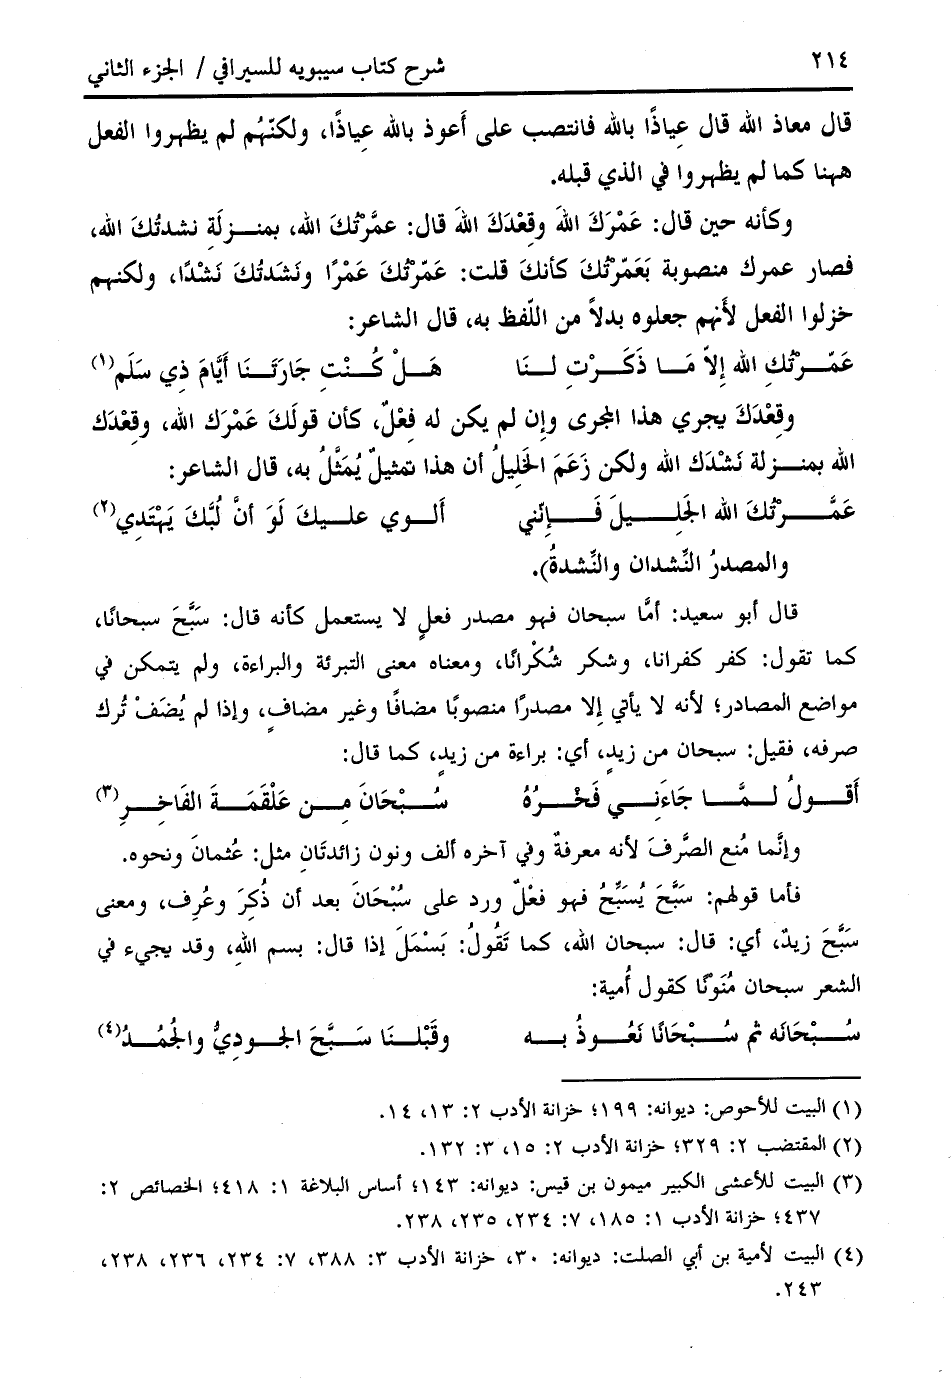 ٢١٤
شرح كتاب سيبويه للسيرافي / الجزء الثاني
قال معاذ الله قال عياذًا بالله فانتصب على أعوذ بالله عياذًا، ولكنّهُم لم يظهروا الفعل
ههنا كما لم يظهروا في الذي قبله.
وكأنه حين قال: عَمْرَكَ اللهَ وقِعْدَكَ اللهَ قال: عمَّرْتُكَ الله، بمنـزلَةِ نشدتُكَ الله،
فصار عمرك منصوبة بَعَمّرْتُكَ كأنكَ قلت: عَمّرْتُكَ عَمْرًا ونَشَدتُكَ نَشْدًا، ولكنهم
خزلوا الفعل لأنهم جعلوه بدلاً من اللّفظ به، قال الشاعر:
عَمّرْتُكِ الله إلاّ مَا ذَكَرْتِ لنَا هَلْ كُنْتِ جَارَتَنَا أيَّامَ ذِي سَلَم(١)
وقِعْدَكَ يجري هذا المجرى وإن لم يكن له فِعْلٌ، كأن قولَكَ عَمْرَك الله، وقِعْدَك
الله بمنـزلة نَشْدَك الله ولكن زَعَمَ الخليلُ أن هذا تمثيلٌ يُمَثَّلُ به، قال الشاعر:
عَمَّرْتُكَ الله الجَليلَ فَإنّني ألوي عليكَ لَوَ أنَّ لُبَّكَ يَهْتَدِي(٢)
والمصدرُ النِّشدان والنِّشدةُ).
قال أبو سعيد: أمَّا سبحان فهو مصدر فعلٍ لا يستعمل كأنه قال: سَبَّحَ سبحانًا،
كما تقول: كفر كفرانا، وشكر شُكْرانًا، ومعناه معنى التبرئة والبراءة، ولم يتمكن في
مواضع المصادر؛ لأنه لا يأتي إلا مصدرًا منصوبًا مضافًا وغير مضافٍ، وإذا لم يُضَفْ تُرك
صرفه، فقيل: سبحان من زيدٍ، أي: براءة من زيدٍ، كما قال:
أقولُ لمَّا جَاءَني فَخْرُهُ سُبْحَانَ مِن عَلْقَمَةَ الفَاخِرِ(٣)
وإنَّما مُنع الصَّرفَ لأنه معرفةٌ وفي آخره ألف ونون زائدتَانِ مثل: عُثمانَ ونحوه.
فأما قولهم: سَبَّحَ يُسَبِّحُ فهو فعْلٌ ورد على سُبْحَانَ بعد أن ذُكِرَ وعُرِف، ومعنى
سَبَّحَ زيدٌ، أي: قال: سبحان الله، كما تَقُولُ: بَسْمَلَ إذا قال: بسم الله، وقد يجيء في
الشعر سبحان مُنَونًا كقول أُمية:
سُبْحَانَه ثم سُبْحَانًا نَعُوذُ به وقَبْلنَا سَبَّحَ الجوديُّ والجُمُدُ(٤)
(١) البيت للأحوص: ديوانه: ١٩٩؛ خزانة الأدب ٢: ١٣، ١٤.
(٢) المقتضب ٢: ٣٢٩؛ خزانة الأدب ٢: ١٥، ٣: ١٣٢.
(٣) البيت للأعشى الكبير ميمون بن قيس: ديوانه: ١٤٣؛ أساس البلاغة ١: ٤١٨؛ الخصائص ٢:
٤٣٧؛ خزانة الأدب ١: ١٨٥، ٧: ٢٣٤، ٢٣٥، ٢٣٨.
(٤) البيت لأمية بن أبي الصلت: ديوانه: ٣٠، خزانة الأدب ٣: ٣٨٨، ٧: ٢٣٤، ٢٣٦، ٢٣٨،
٢٤٣.